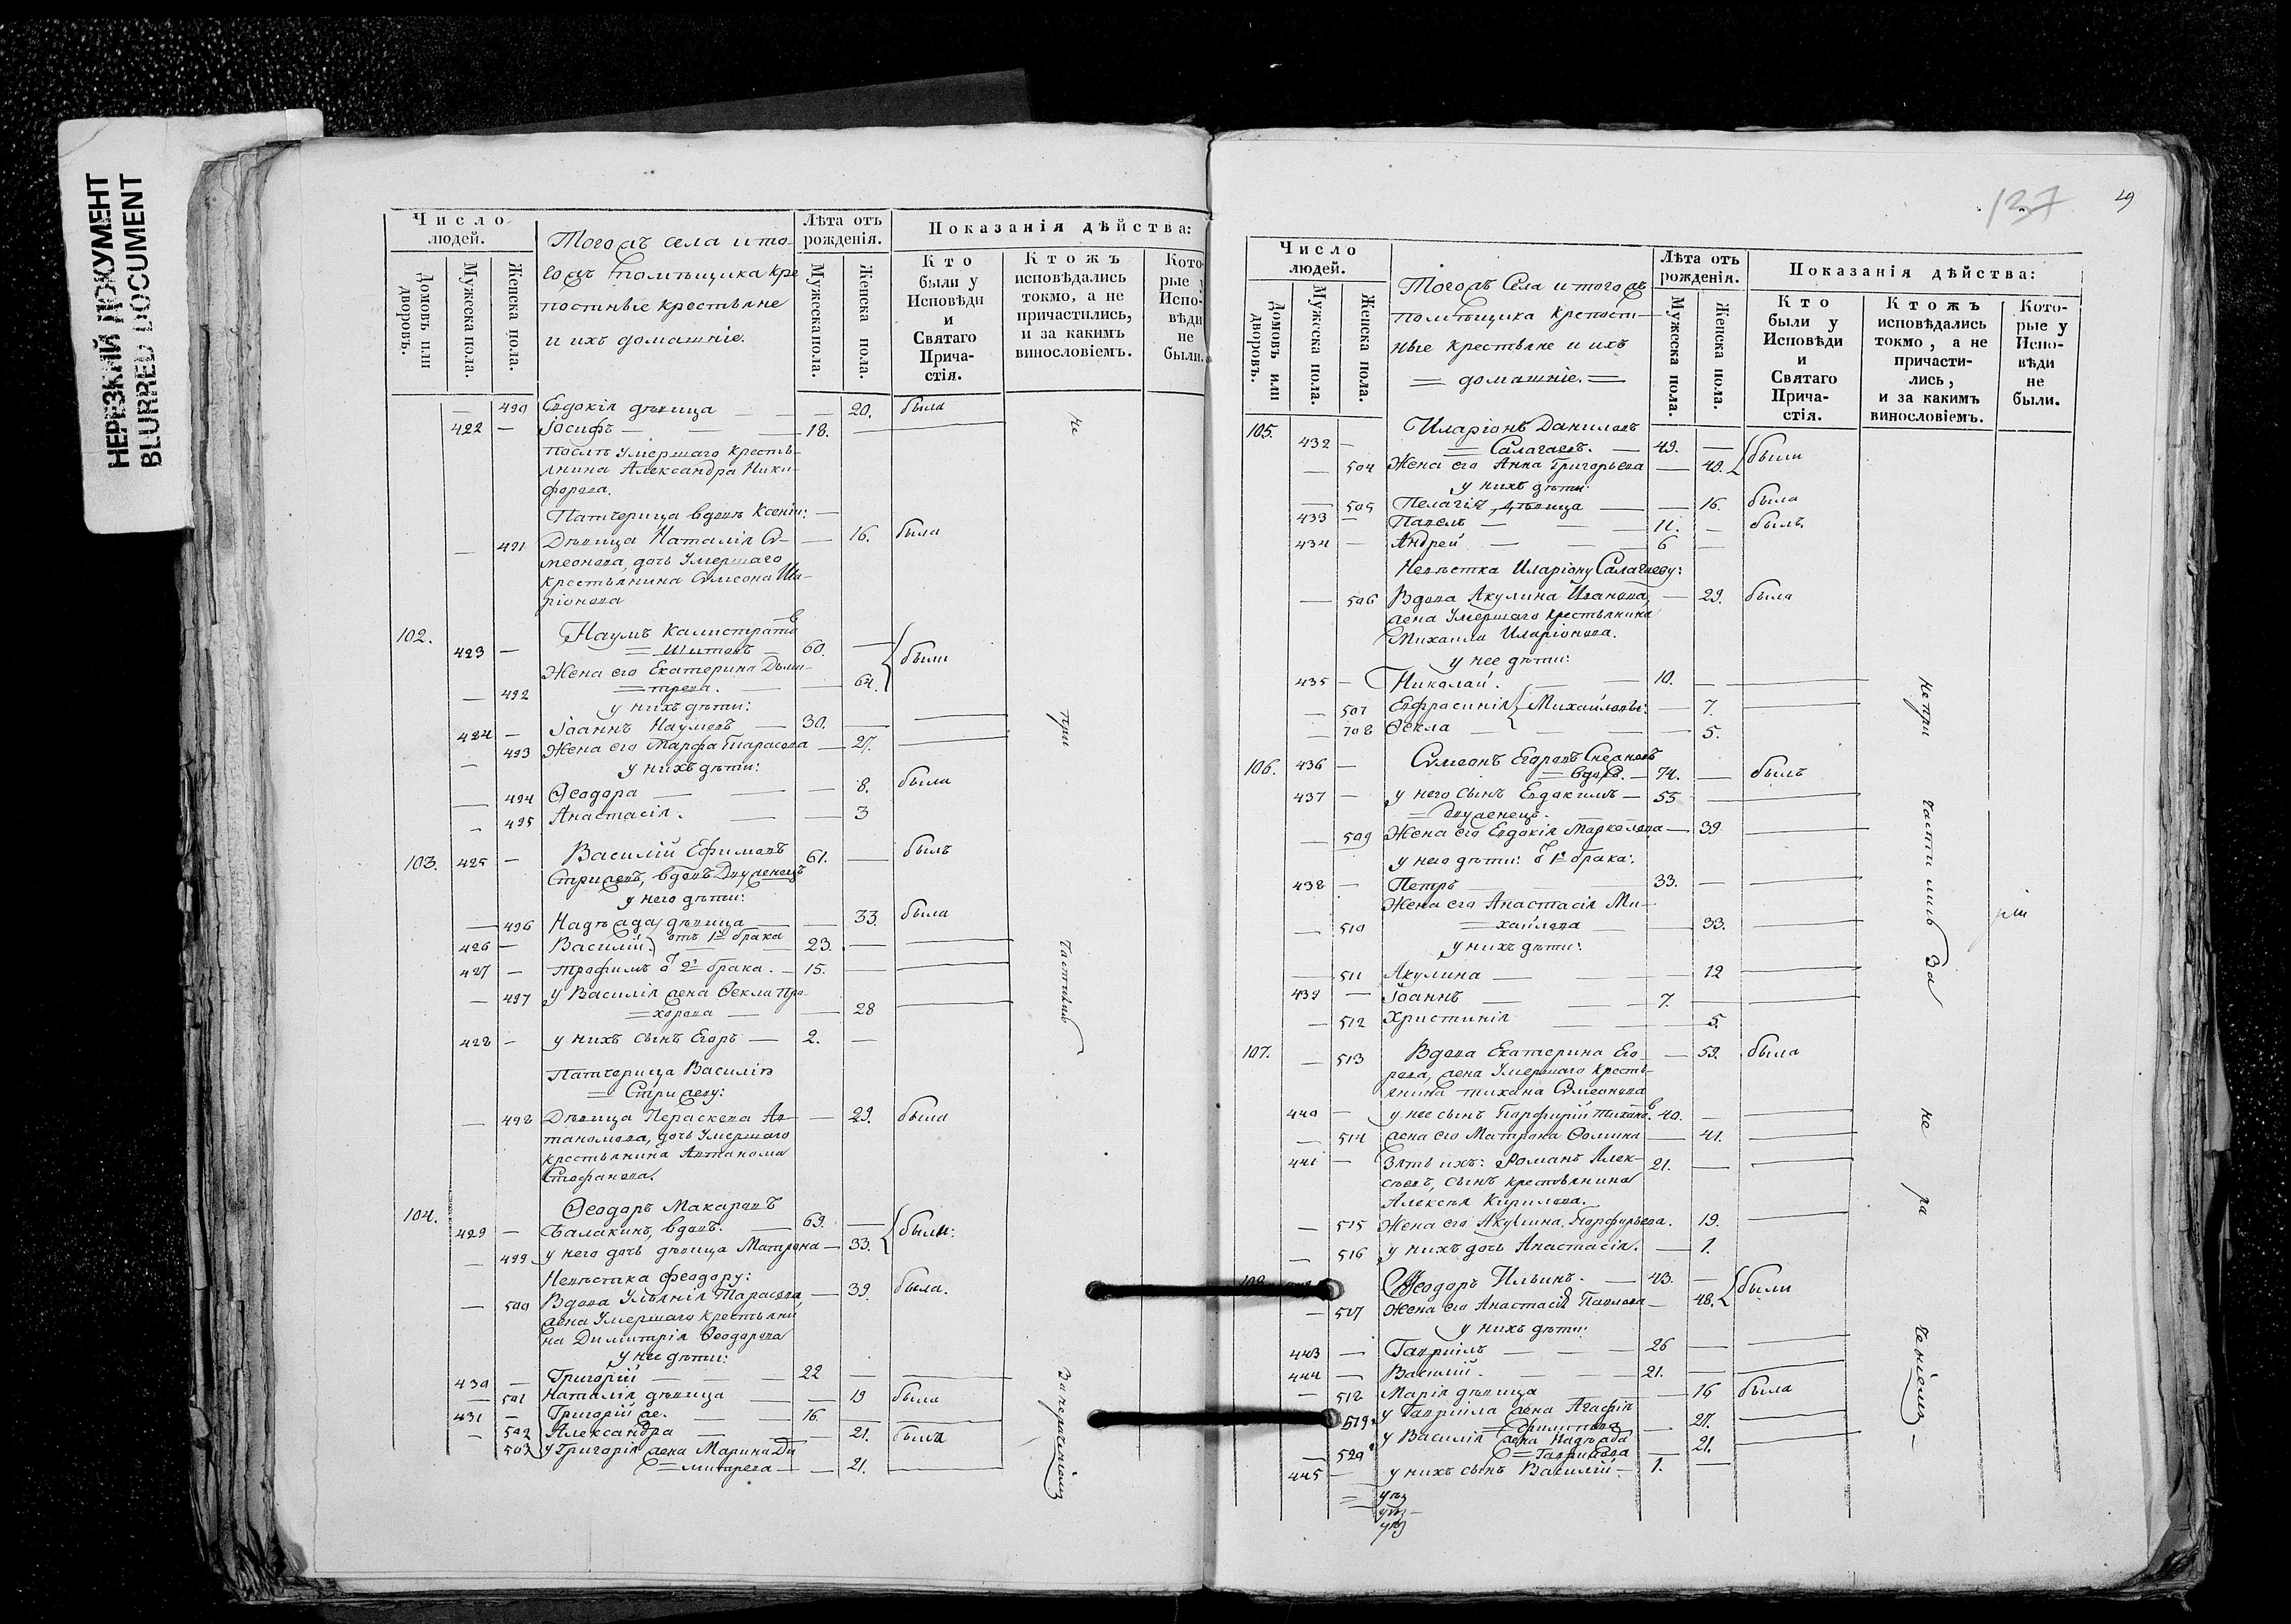 НЕРЕЗКИЙ ДОКУМЕНТ
BLURRED DOCUMENT
Число людей.
Домовъ или дворовъ.
Мужеска пола.
Женска пола.
Тогожъ села и то-
гожъ помѣщика кре
постные крестьяне
и ихъ домашніе.
Лѣта отъ рожденія.
Мужеска пола.
Женска пола.
Показанія дѣйства:
Кто были у Исповѣди и Святаго Прича-стія.
Ктожъ исповѣдались токмо, а не причастились, и за какимъ винословіемъ.
Кото-рые у Испо-вѣди не были.
— 490 Евдокія дѣвица — — 20. была
422 — Іосифъ — — 18.
послѣ умершаго кресть-
янина Александра Ники-
форова.
Патчерица вдовѣ Ксеніи:
— 491 Дѣвица Наталія Си- — 16. была
меонова, дочь умершаго
крестьянина Симеона Ила-
ріонова
102. Наумъ Калистратов
423 — Шитовъ — 60. — были
Жена его Екатерина Дими-
— 492 трева. — — 64.
у нихъ дѣти:
424 — Іоаннъ Наумовъ — 30. —
— 493 Жена его Марфа Тарасова — 27.
у нихъ дѣти:
— 494 Ѳеодора — — 8. была
— 495 Анастасія. — 3
103. 425 — Василій Ефимовъ 61. — былъ
Стрижевъ, вдовъ Двуженецъ
у него дѣти:
— 496 Надѣжда, дѣвица — — 33. была
426 — Василій. отъ 1го брака 23. —
427 — Трофимъ отъ 2го брака. — 15. —
— 497 у Василія жена Ѳекла Про-
хорова — — 28
428 — у нихъ сынъ Егоръ — 2. —
Патчерица Василію
Стрижеву:
— 498 Дѣвица Пераскева Ав- — 29. была
таномова, дочь умершаго
крестьянина Автанома
Стефанова.
104. Ѳеодоръ Макаровъ
429 — Балакинъ, вдовъ. — 69. — были:
— 499 у него дочь дѣвица Матрона — 33.
Невѣстка Феодору:
— 500 Вдова Ульянія Тарасова, — 39. была.
жена умершаго крестьяни
на Димитрія Ѳеодорова
у нее дѣти:
430 — Григорій — — 22 —
— 501 Наталія дѣвица — 19 была
431 — Григорій же. — 16. —
— 502 Александра — — 21. была
503 у Григорія жена Марина Ди
митрева — — 21.
не
при
частились
за нераченіемъ
137
49
Число людей.
Домовъ или дворовъ.
Мужеска пола.
Женска пола.
Тогожъ Села и тогожъ
помѣщика крѣпост-
ные крестьяне и ихъ
домашніе.
Лѣта отъ рожденія.
Мужеска пола.
Женска пола.
Показанія дѣйства:
Кто были у Исповѣди и Святаго Прича-стія.
Ктожъ исповѣдались токмо, а не причасти-лись, и за какимъ винословіемъ.
Кото-рые у Испо-вѣди не были.
105. Иларіонъ Даниловъ
432 — Салагаевъ. — 49. — были
— 504 Жена его Анна Григорьева — 49.
у нихъ дѣти:
— 505 Пелагія, дѣвица — — 16. была
433 — Павелъ — — 11. — былъ
434 — Андрей — — 6 —
Невѣстка Иларіону Салагаеву:
— 506 Вдова Акулина Иванова, — 29. была
жена умершаго крестьянина
Михаила Иларіонова.
у нее дѣти:
435 — Николай. — 10. —
— 507 Евфрасинія Михайловы: — 7.
— 508 Ѳекла — — 5.
106. 436 — Симеонъ Егоровъ
вдовъ. — 74. — былъ
437 — у него сынъ Евдокимъ — 55
двуженецъ.
— 509 Жена его Евдокія Маркелова — 39
у него дѣти: отъ 1го брака:
438 — Петръ — 33. —
Жена его Анастасія Ми-
— 510 хайлова — 33.
у нихъ дѣти:
— 511 Акулина — — 12
439 — Іоаннъ — — 7. —
— 512 Христинія — — 5.
107. — 513 Вдова Екатерина Его- — 59. была
рова, жена умершаго кресть-
янина Тихона Симеонова
440 — у нее сынъ Порфирій Тиханов. 40. —
— 514 жена его Матрона Ѳомина — 41.
441 — Зять ихъ: Романъ Алек- 21. —
сѣевъ, сынъ крестьянина
Алексѣя Кирилова.
— 515 Жена его Акулина Порфирьева. 19.
— 516 у нихъ дочь Анастасія. — 1.
108. Ѳеодоръ Ильинъ. — 43. — были
— 517 Жена его Анастасія Павлова — 48.
у нихъ дѣти:
443 — Гавріилъ — — 26 —
444 — Василій. — — 21. —
— 518 Марія дѣвица — 16 была
519 у Гавріила жена Агафія
Филипова — 27.
— 520 у Василія жена Надѣжда
Гаврилова — 21.
445 — у нихъ сынъ Василій — 1. —
не при
частились
за
не
ра
ченіемъ —